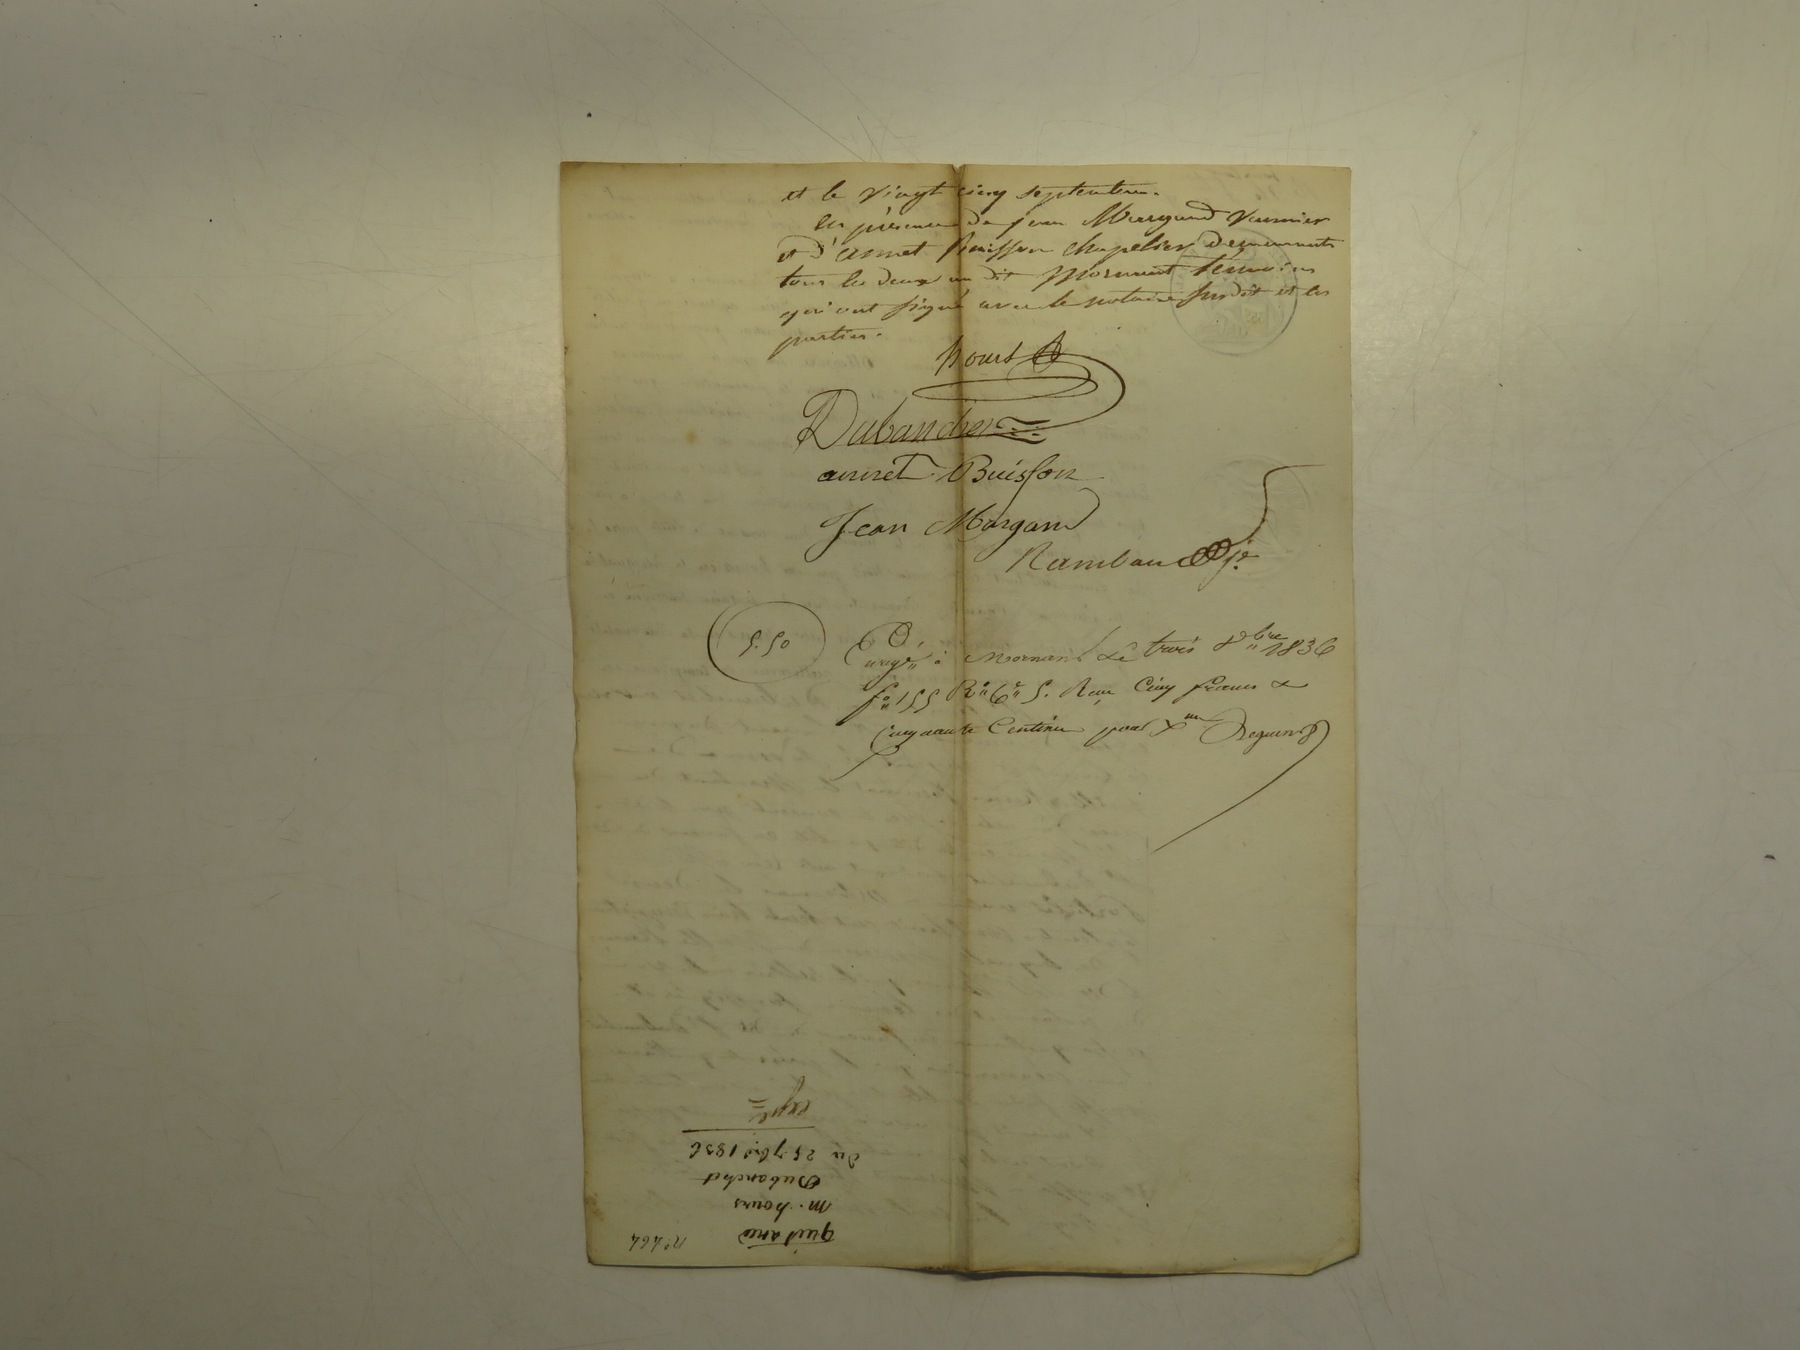 et le vingt cinq septembre.
en présence de jean Margand Vannier
et d'annet Buisson chapelier demeurants
tous les deux au dit Mornant témoins
qui ont signé avec le notaire susdit et les
parties.
hours
Dubanchet
annet Buisson
Jean Margand
Rambaud
5.50
à Mornant Le trois 8bre 1836
fo 155 Ro Co 5. Reçu Cinq francs &
Cinquante Centimes pour Xme
expé
du 25 7bre 1836
Dubanchet
m. hours
quitance
no 464